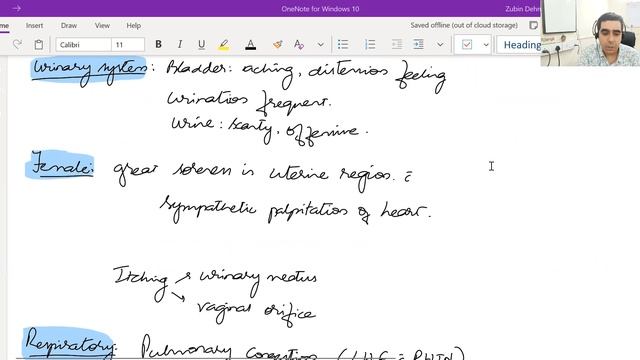 OneNote for Windows 10
Zubin Deh
Saved offline (out of cloud storage)
Calibri 11 B I U A Heading
Urinary system: Bladder: aching, distension feeling
Urination frequent.
Urine: scanty, offensive.
Female: great soreness in uterine region. c̄
sympathetic palpitation of heart.
Itching urinary meatus
vaginal orifice
Respiratory: Pulmonary congestion (LHF =